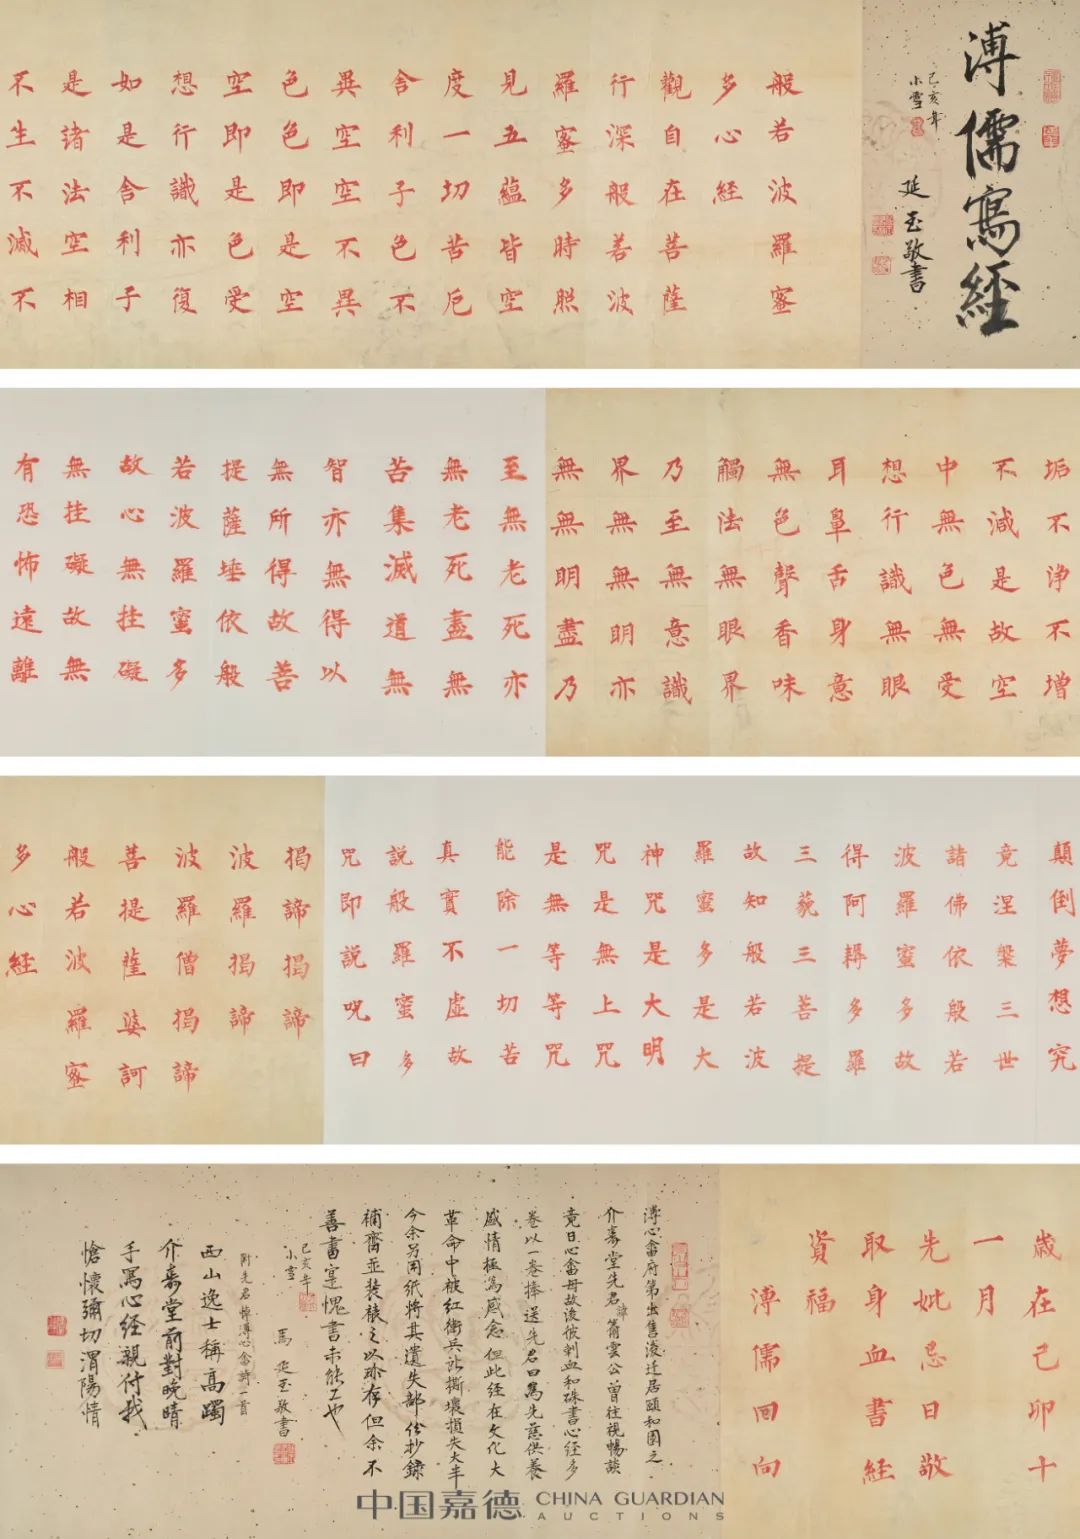 溥儒寫經
己亥年
小雪
延玉敬書
般若波羅蜜
多心經
觀自在菩薩
行深般若波
羅蜜多時照
見五蘊皆空
度一切苦厄
舍利子色不
異空空不異
色色即是空
空即是色受
想行識亦復
如是舍利子
是諸法空相
不生不滅不
垢不淨不增
不減是故空
中無色無受
想行識無眼
耳鼻舌身意
無色聲香味
觸法無眼界
乃至無意識
界無無明亦
無無明盡乃
至無老死亦
無老死盡無
苦集滅道無
智亦無得以
無所得故菩
提薩埵依般
若波羅蜜多
故心無挂礙
無挂礙故無
有恐怖遠離
顛倒夢想究
竟涅槃三世
諸佛依般若
波羅蜜多故
得阿耨多羅
三藐三菩提
故知般若波
羅蜜多是大
神咒是大明
咒是無上咒
是無等等咒
能除一切苦
真實不虛故
說般羅蜜多
咒即說呪曰
揭諦揭諦
波羅揭諦
波羅僧揭諦
菩提薩婆訶
般若波羅蜜
多心經
歲在己卯十
一月
先妣忌日敬
取身血書經
資福
溥儒回向
溥心畬府第出售後迁居頤和園之
介壽堂先君諱簫雲公曾往視暢談
竟日心畬母故後彼刺血和硃書心经多
卷以一卷捧送先君曰為先慈供養
感情極為感念但此经在文化大
革命中被红衛兵撕壞損失大半
今余另用紙將其遺失部份抄録
補齊並装裱之以珍存但余不
善書寔愧書未能工也
己亥年
小雪
馬延玉敬書
附先君悼溥心畬詩一首
西山逸士稱高躅
介壽堂前對晚晴
手寫心經親付我
愴懷彌切渭陽情
中国嘉德 CHINA GUARDIAN
AUCTIONS